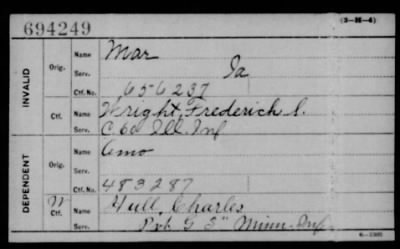 694249
(3-M-4)
INVALID
Orig.
Name Mar
Serv. Ia
Ctf. No. 656237
Ctf.
Name Wright, Frederick S.
Serv. C 60 Ill. Inf
DEPENDENT
Orig.
Name Emo
Serv.
Ctf. No. 483287
W
Ctf.
Name Hull, Charles
Serv. Pvt G 3" Minn. Inf.